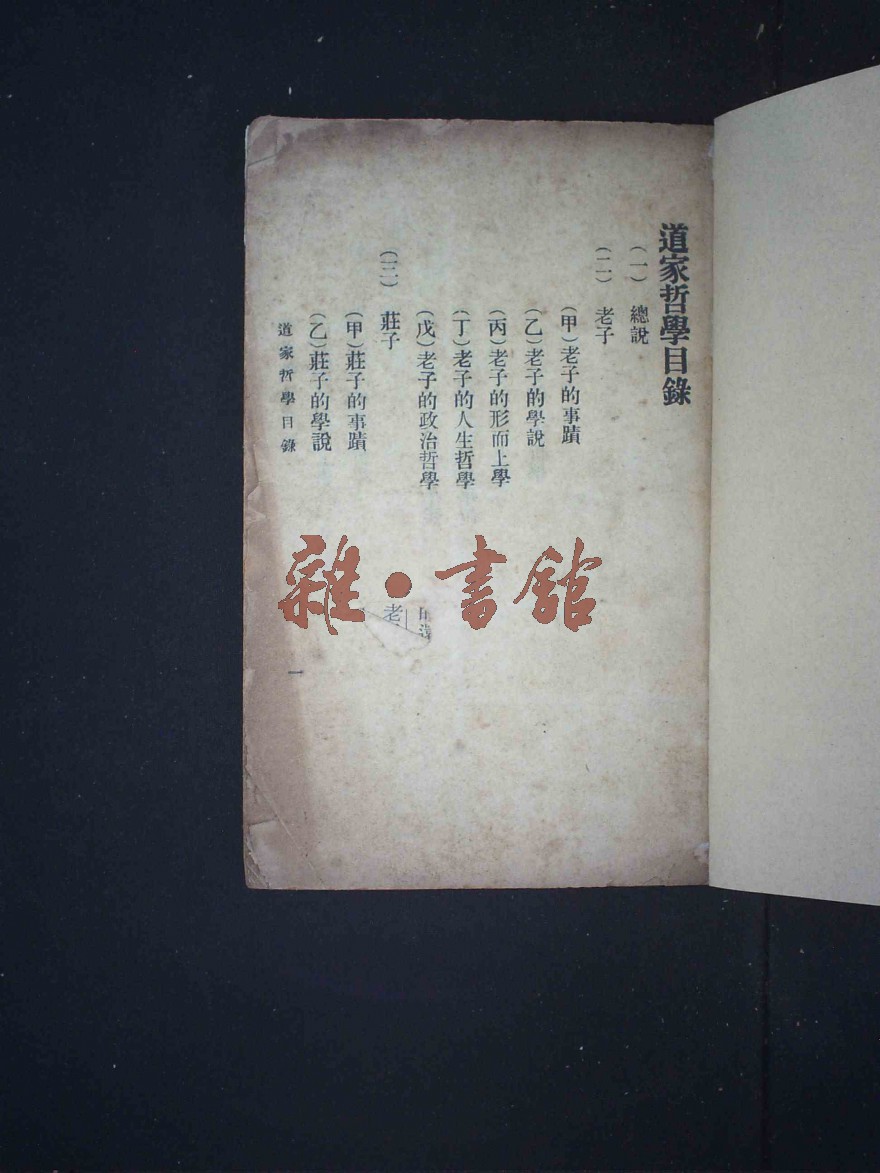 道家哲學目錄
(一) 總說
(二) 老子
(甲)老子的事蹟
(乙)老子的學說
(丙)老子的形而上學
(丁)老子的人生哲學
(戊)老子的政治哲學
(三) 莊子
(甲)莊子的事蹟
(乙)莊子的學說
道家哲學目錄
一
老
雜·書館